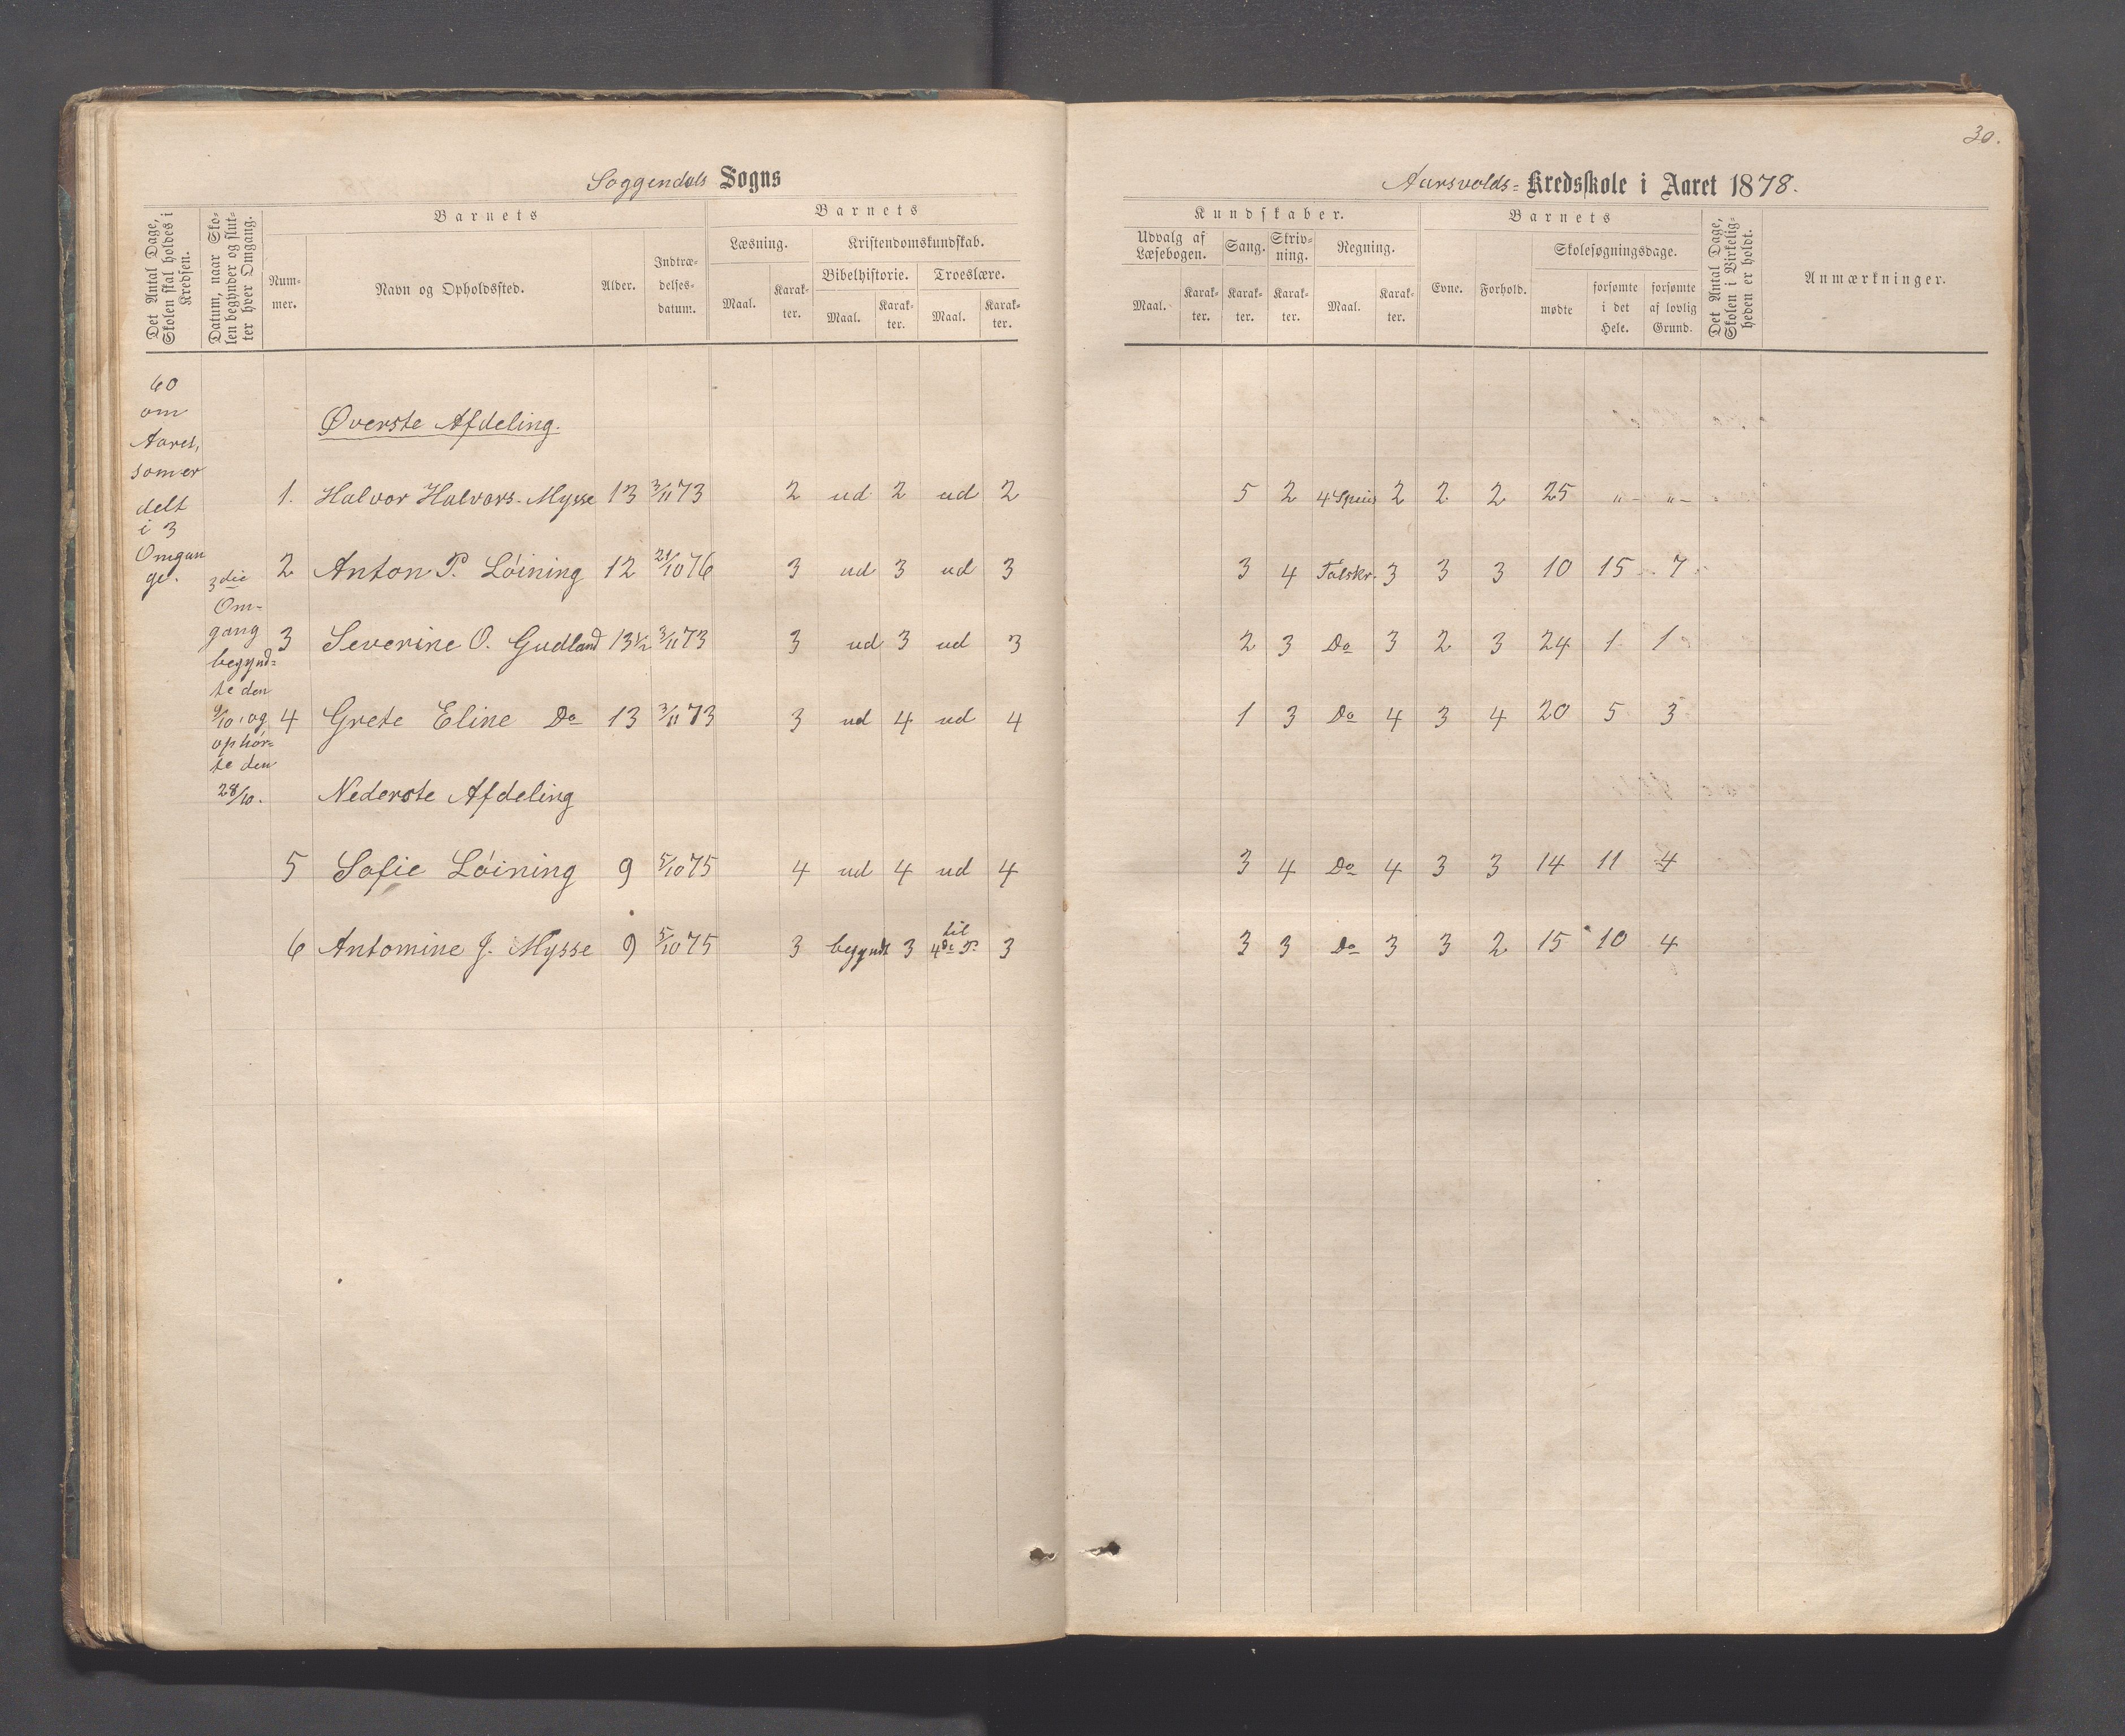 30.
Soggendals Sogns
Aarsvolds= Kredsskole i Aaret 1878.
Det Antal Dage, Skolen skal holdes i Kredsen.
Datum, naar Skolen begynder og slutter hver Omgang.
Barnets
Nummer.
Navn og Opholdssted.
Alder.
Indtrædelsesdatum.
Barnets
Læsning.
Kristendomskundskab.
Bibelhistorie.
Troeslære.
Maal.
Karakter.
Maal.
Karakter.
Maal.
Karakter.
Kundskaber.
Udvalg af Læsebogen.
Sang.
Skrivning.
Regning.
Maal.
Karakter.
Karakter.
Karakter.
Maal.
Karakter.
Barnets
Evne.
Forhold.
Skolesøgningsdage.
mødte
forsømte i det Hele.
forsømte af lovlig Grund.
Det Antal Dage, Skolen i Virkeligheden er holdt.
Anmærkninger.
60
om
Aaret,
som er
delt
i 3
Omgan
ge.
3die
Om-
gang
begynd=
te den
9/10, og
ophör=
te den
28/10.
Øverste Afdeling.
1. Halvor Halvors. Mysse 13 3/11 73 2 ud 2 ud 2 5 2 4 Spcis 2 2 2 25 „- „-
2 Anton P. Löining 12 21/10 76 3 ud 3 ud 3 3 4 Talskr. 3 3 3 10 15 7
3 Severine O. Gudland 13½ 3/11 73 3 ud 3 ud 3 2 3 Do 3 2 3 24 1 1
4 Grete Eline Do 13 3/11 73 3 ud 4 ud 4 1 3 Do 4 3 4 20 5 3
Nederste Afdeling
5 Sofie Löining 9 5/10 75 4 ud 4 ud 4 3 4 Do 4 3 3 14 11 4
6 Antomine J. Mysse 9 5/10 75 3 begyndt 3 til 4de P. 3 3 3 Do 3 3 2 15 10 4